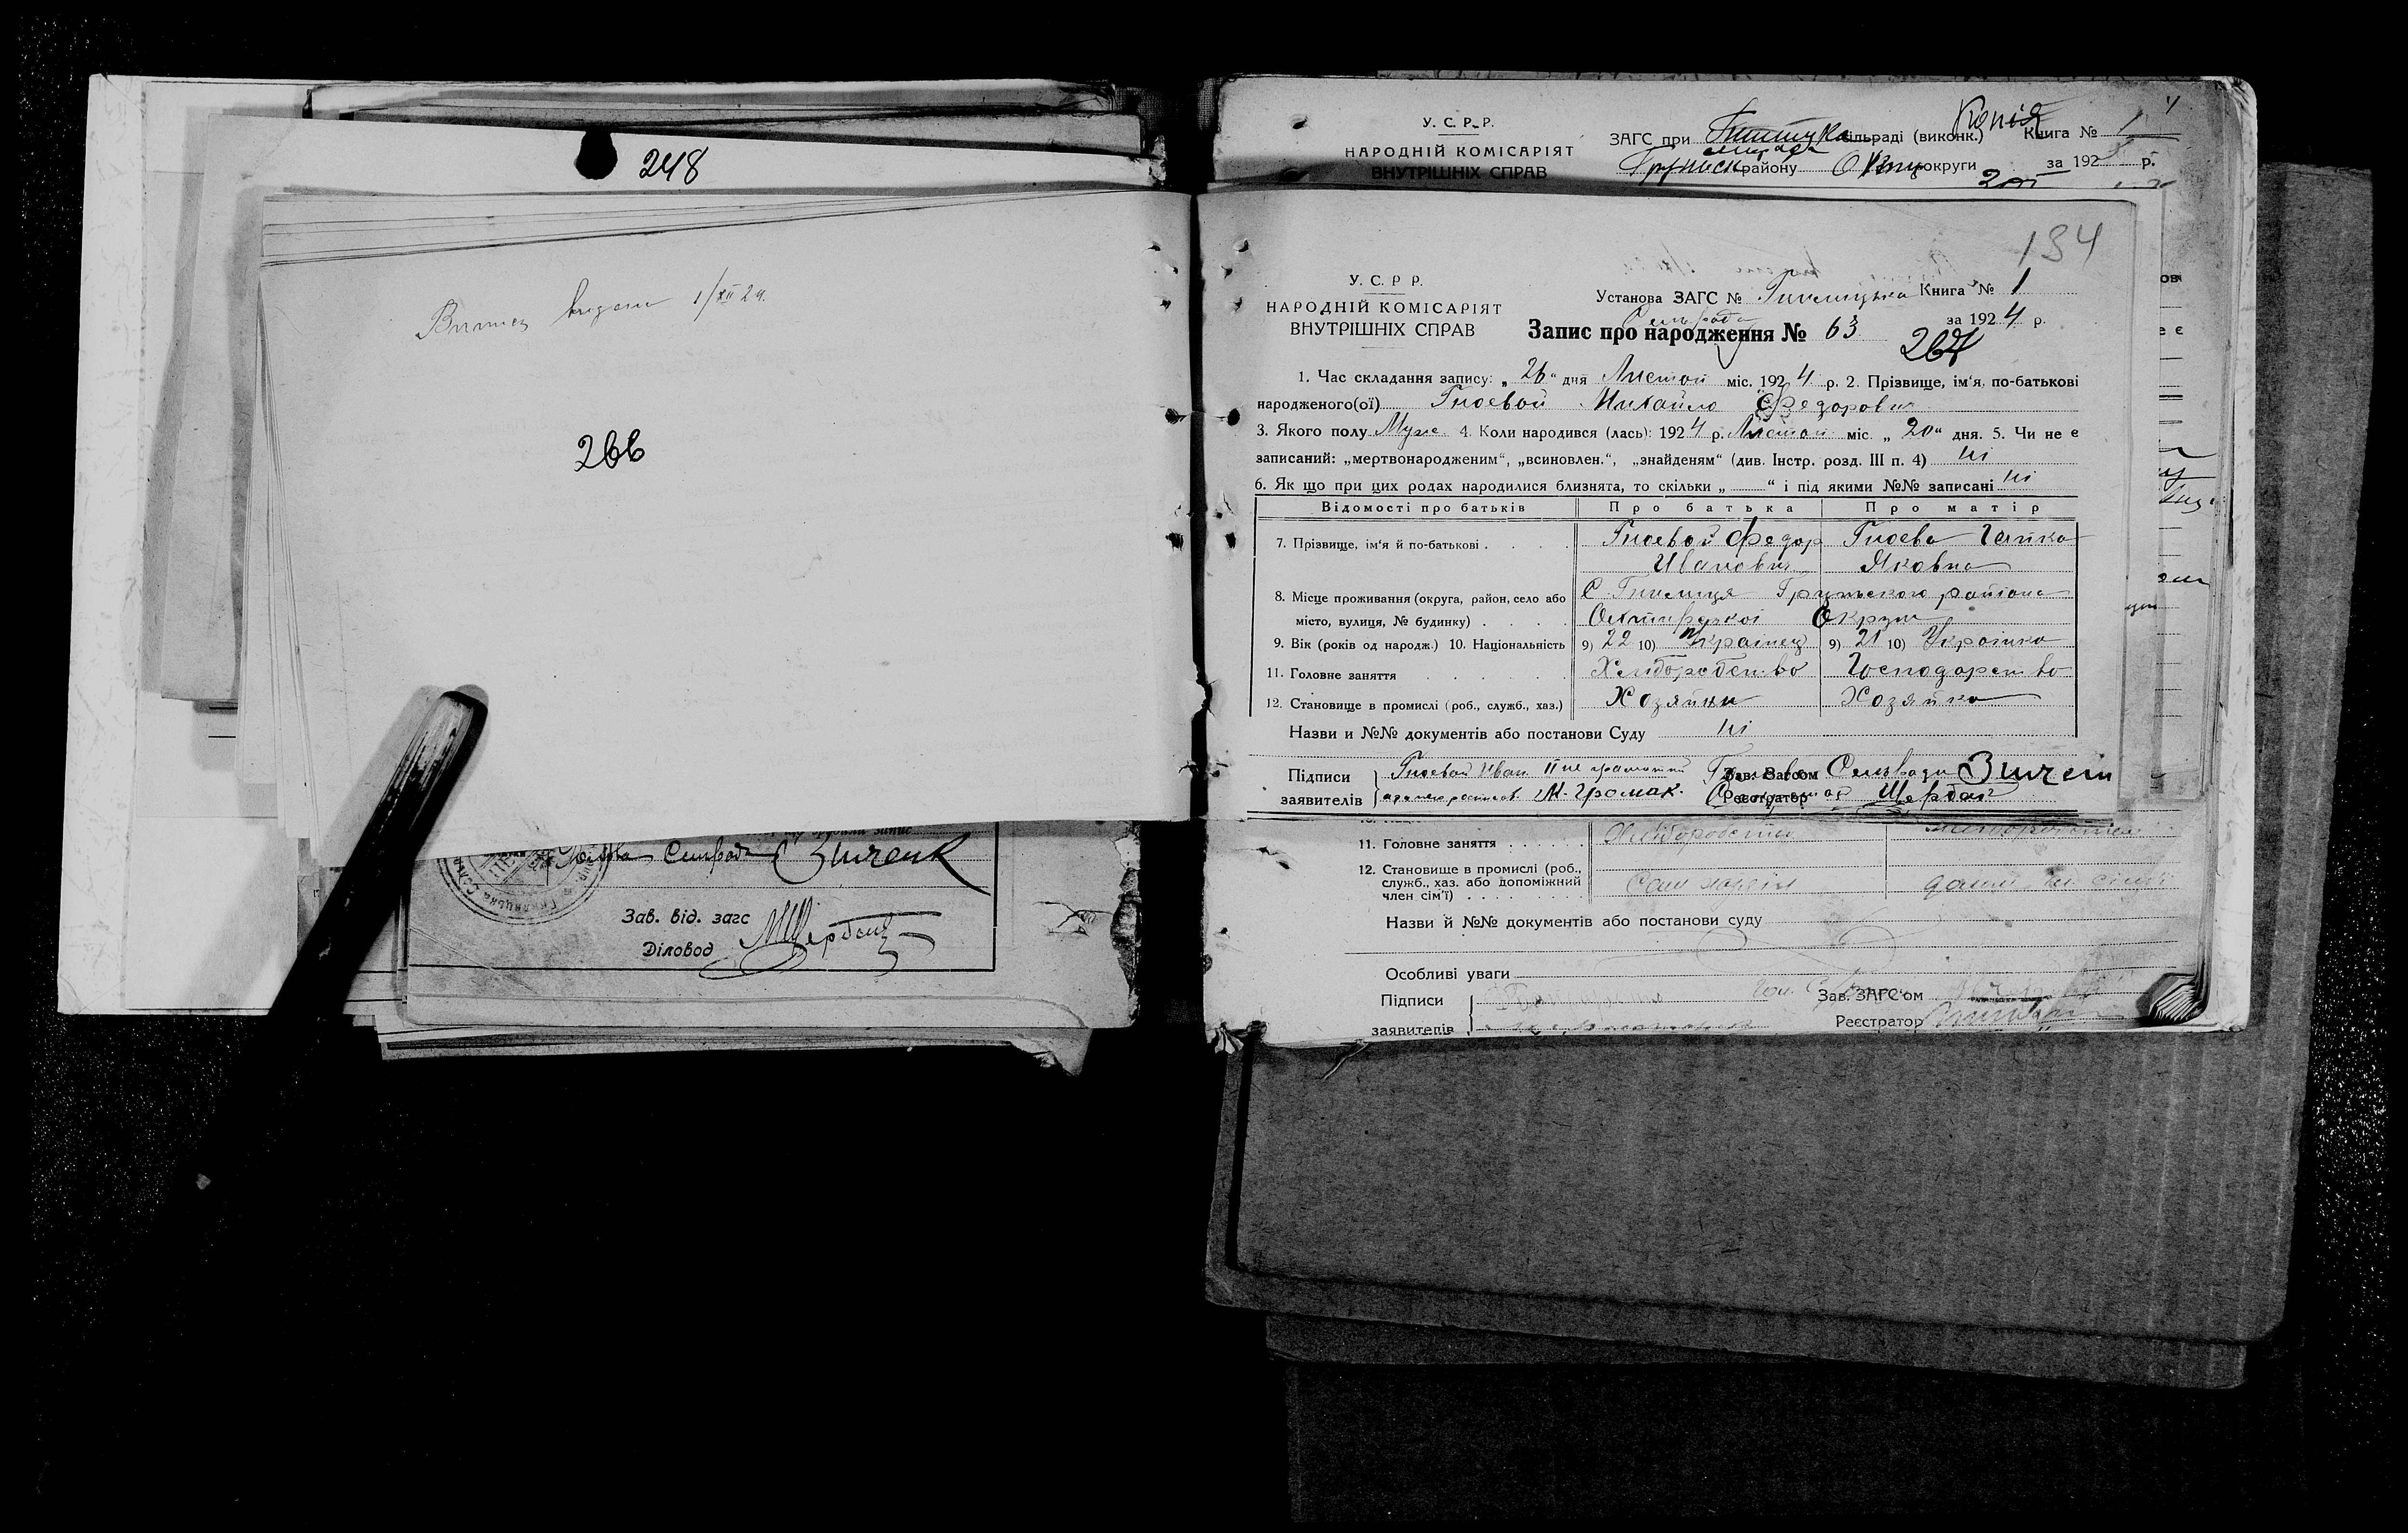 248
Витяг видани 1/XII 24.
266
Голова Сільради Зиченк
Зав. від. загс
Діловод МЩербань
У. С. Р. Р.
НАРОДНІЙ КОМІСАРІЯТ
ВНУТРІШНІХ СПРАВ
Копія
ЗАГС при сільраді (виконк.) Книга № 1
Грунськ району Охтир округи за 192 р.
134
У. С. Р Р.
НАРОДНІЙ КОМІСАРІЯТ
ВНУТРІШНІХ СПРАВ
Установа ЗАГС № Гнилицька Книга № 1
Сельрада за 1924 р.
Запис про народження № 63
267
1. Час складання запису: „ 26 “ дня Листоп міс. 1924 р. 2. Прізвище, ім‘я, по-батькові
народженого(ої) Гноевой Михайло Федорович
3. Якого полу Муж. 4. Коли народився (лась): 1924 р. Листоп міс. „ 20 “ дня. 5. Чи не є
записаний: „мертвонародженим“, „всиновлен.“, „знайденям“ (див. Інстр. розд. III п. 4) ні
6. Як що при цих родах народилися близнята, то скільки „ “ і під якими №№ записані ні
Відомості про батьків Про батька Про матір
7. Прізвище, ім‘я й по-батькові . Гноевой Федор Гноева Ганка
Иванович Яковна
8. Місце проживання (округа, район, село або С. Гнилиця Грунського району
місто, вулиця, № будинку) . Охтирської Округи
9. Вік (років од народж.) 10. Національність 9) 22 10) Українец 9) 21 10) Українка
11. Головне заняття Хліборобство Господарство
12. Становище в промислі (роб., служб., хаз.) Хозяйин Хозяйка
Назви и №№ документів або постанови Суду ні
Підписи Гноевой Иван Зав. Загсом Сельради Зичен
заявителів М. Громак. Реєстратор Щербань
11. Головне заняття Хліборобство
12. Становище в промислі (роб.,
служб., хаз. або допоміжний
член сім‘ї)
Назви й №№ документів або постанови суду
Особливі уваги
Підписи Зав. ЗАГС‘ом
заявителів Реєстратор